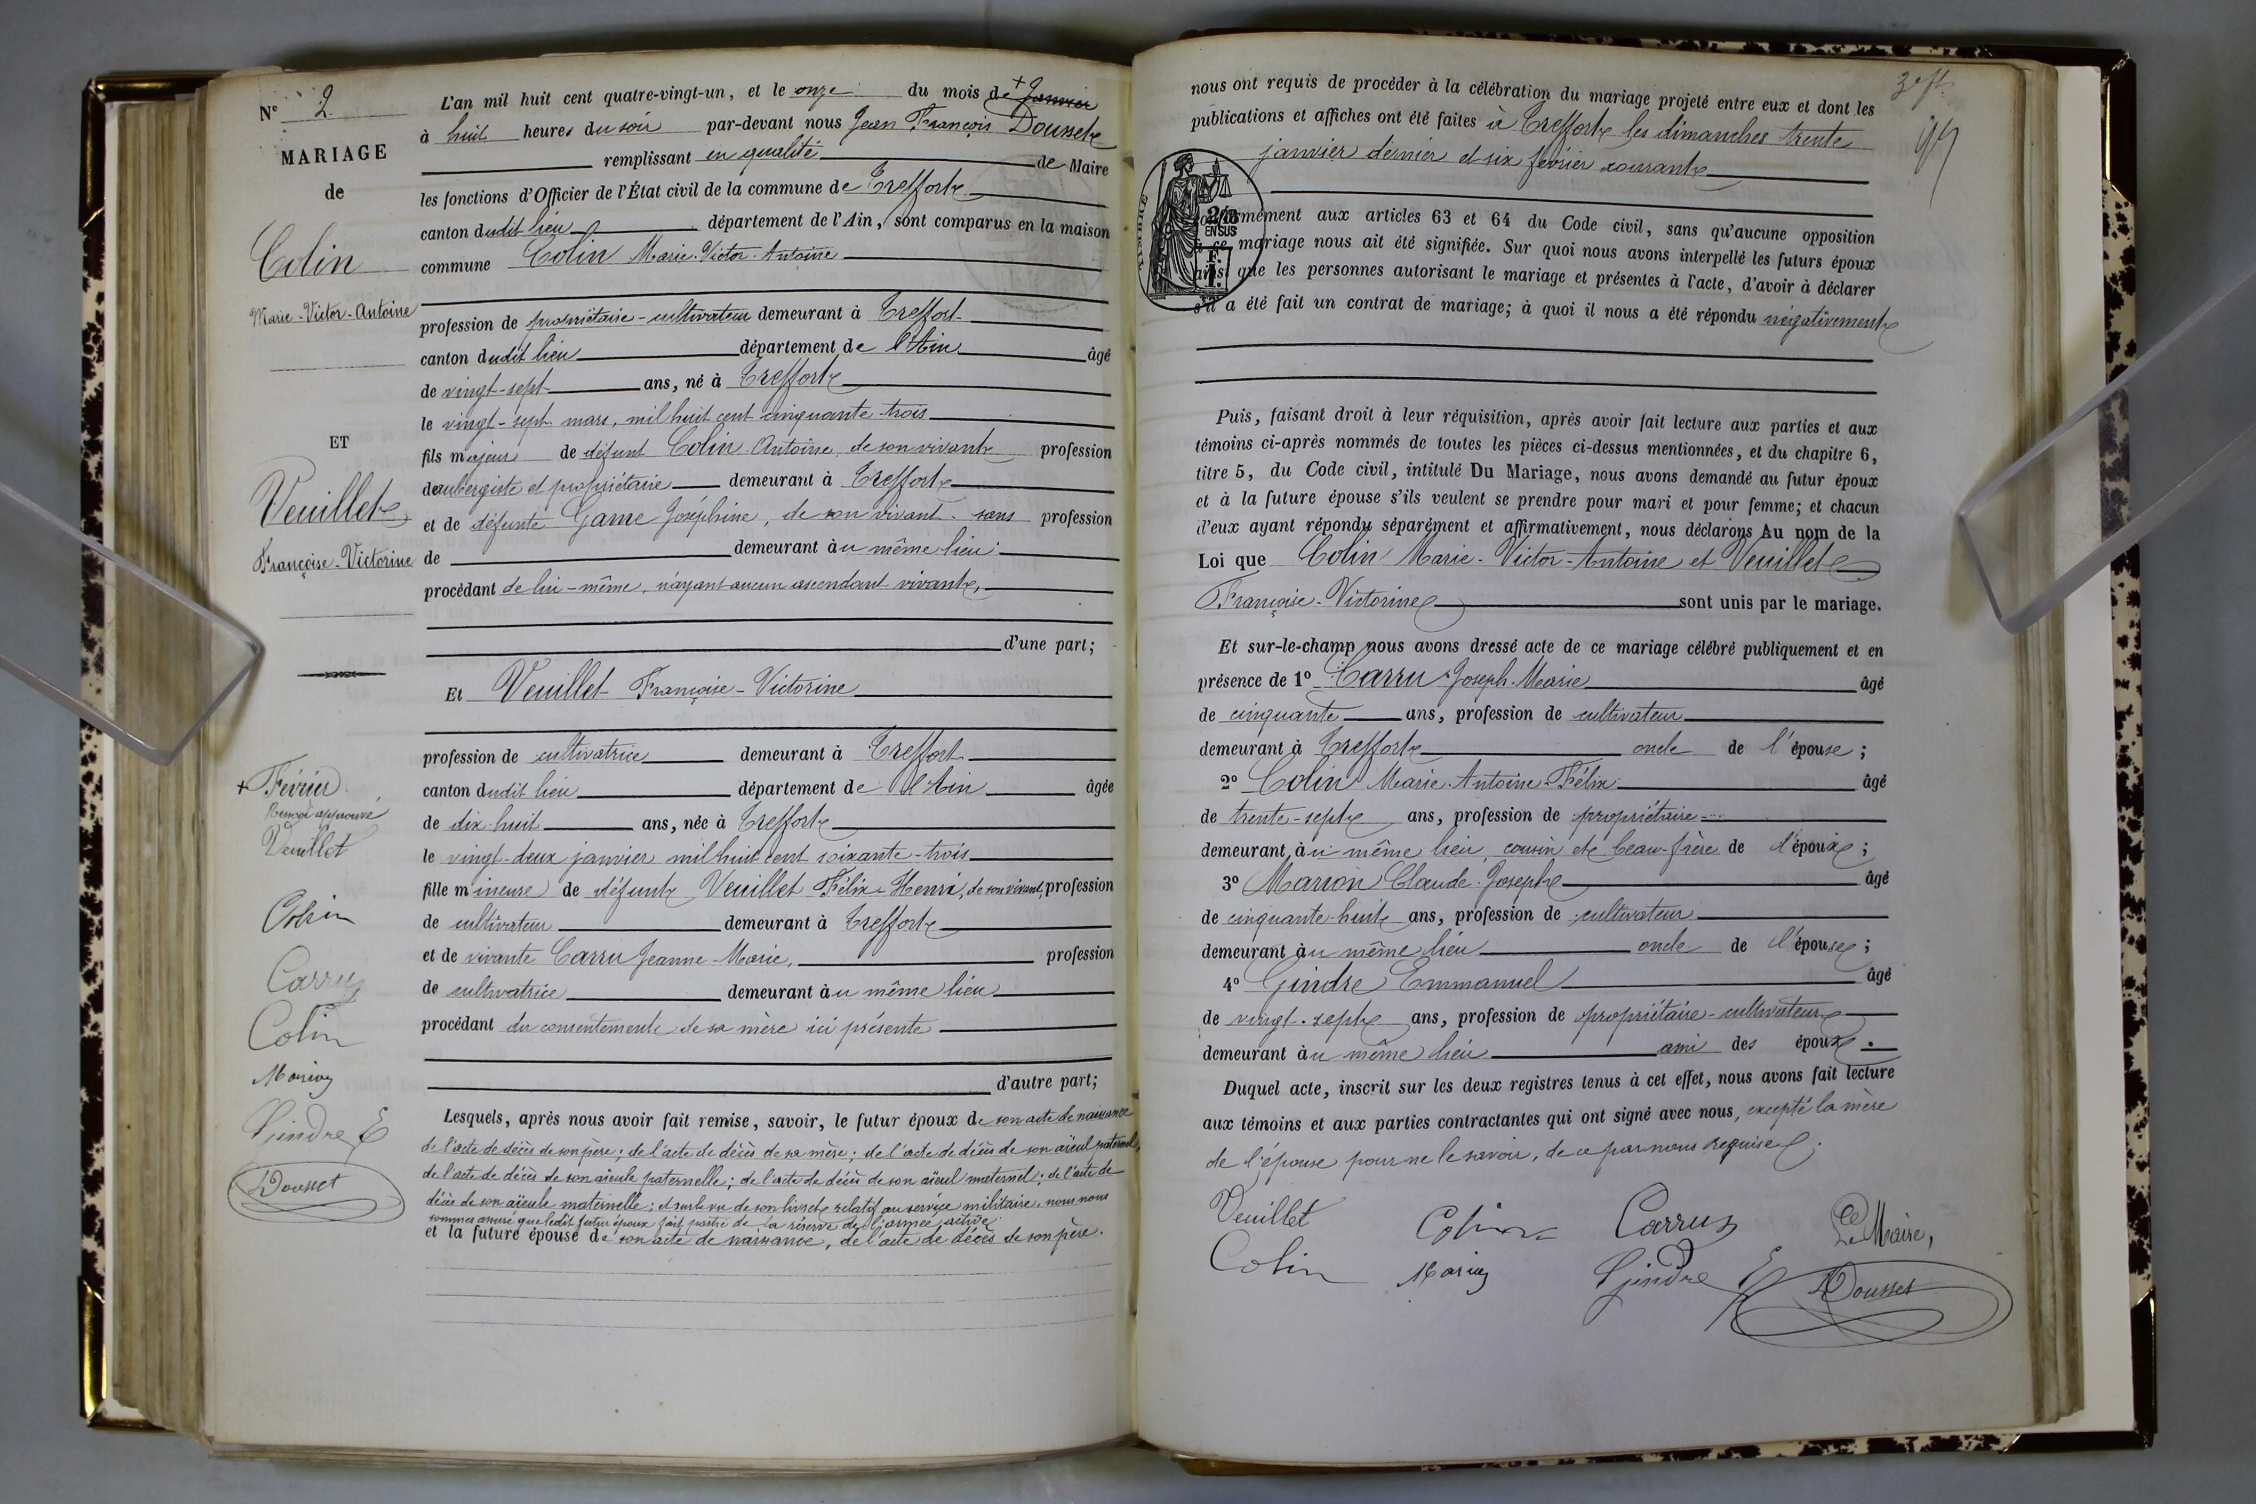 N° 2
MARIAGE
de
Colin
Marie-Victor-Antoine
ET
Veuillet
Françoise-Victorine
+ Février
Renvoi approuvé
Veuillet
Colin
Carru
Colin
Marion
Gindre E
Dousset
L'an mil huit cent quatre-vingt-un, et le onze du mois de + Janvier
à huit heures du soir par-devant nous Jean François Dousset
remplissant en qualité de Maire
les fonctions d'Officier de l'État civil de la commune de Treffort
canton dudit lieu département de l'Ain, sont comparus en la maison
commune Colin Marie-Victor-Antoine
profession de propriétaire-cultivateur demeurant à Treffort
canton dudit lieu département de l'Ain âgé
de vingt-sept ans, né à Treffort
le vingt-sept mars, mil huit cent cinquante-trois
fils majeur de défunt Colin Antoine, de son vivant profession
de aubergiste et propriétaire demeurant à Treffort
et de défunte Game Joséphine, de son vivant sans profession
de demeurant au même lieu
procédant de lui-même, n'ayant aucun ascendant vivant,
d'une part;
Et Veuillet Françoise-Victorine
profession de cultivatrice demeurant à Treffort
canton dudit lieu département de l'Ain âgée
de dix-huit ans, née à Treffort
le vingt-deux janvier mil huit cent soixante-trois
fille mineure de défunt Veuillet Félix-Henri, de son vivant, profession
de cultivateur demeurant à Treffort
et de vivante Carru Jeanne-Marie, profession
de cultivatrice demeurant au même lieu
procédant du consentement de sa mère ici présente
d'autre part;
Lesquels, après nous avoir fait remise, savoir, le futur époux de son acte de naissance
de l'acte de décès de son père; de l'acte de décès de sa mère; de l'acte de décès de son aïeul paternel,
de l'acte de décès de son aïeule paternelle; de l'acte de décès de son aïeul maternel; de l'acte de
décès de son aïeule maternelle; et sur le vu de son livret relatif au service militaire, nous nous
sommes assuré que ledit futur époux fait partie de la réserve de l'armée active
et la future épouse de son acte de naissance, de l'acte de décès de son père.
nous ont requis de procéder à la célébration du mariage projeté entre eux et dont les
publications et affiches ont été faites à Treffort les dimanches trente
janvier dernier et six février courant
TIMBRE
2/10
EN SUS
F.
1.
conformément aux articles 63 et 64 du Code civil, sans qu'aucune opposition
à ce mariage nous ait été signifiée. Sur quoi nous avons interpellé les futurs époux
ainsi que les personnes autorisant le mariage et présentes à l'acte, d'avoir à déclarer
s'il a été fait un contrat de mariage; à quoi il nous a été répondu négativement
Puis, faisant droit à leur réquisition, après avoir fait lecture aux parties et aux
témoins ci-après nommés de toutes les pièces ci-dessus mentionnées, et du chapitre 6,
titre 5, du Code civil, intitulé Du Mariage, nous avons demandé au futur époux
et à la future épouse s'ils veulent se prendre pour mari et pour femme; et chacun
d'eux ayant répondu séparément et affirmativement, nous déclarons Au nom de la
Loi que Colin Marie-Victor-Antoine et Veuillet
Françoise-Victorine sont unis par le mariage.
Et sur-le-champ nous avons dressé acte de ce mariage célébré publiquement et en
présence de 1° Carru Joseph-Marie âgé
de cinquante ans, profession de cultivateur
demeurant à Treffort oncle de l'épouse;
2° Colin Marie-Antoine-Félix âgé
de trente-sept ans, profession de propriétaire
demeurant au même lieu, cousin et beau-frère de l'époux;
3° Marion Claude-Joseph âgé
de cinquante-huit ans, profession de cultivateur
demeurant au même lieu oncle de l'épouse;
4° Gindre Emmanuel âgé
de vingt-sept ans, profession de propriétaire-cultivateur
demeurant au même lieu ami des époux.
Duquel acte, inscrit sur les deux registres tenus à cet effet, nous avons fait lecture
aux témoins et aux parties contractantes qui ont signé avec nous, excepté la mère
de l'épouse pour ne le savoir, de ce par nous requise.
Veuillet Colin Carru Le Maire,
Colin Marion Gindre E Dousset